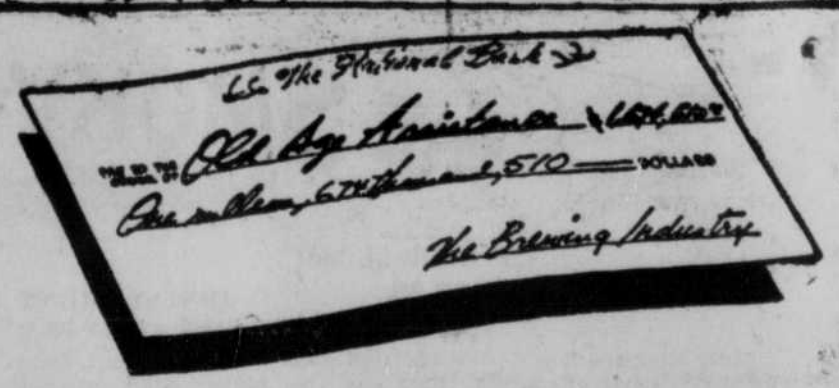 The National Bank
PAY TO THE
ORDER OF Old Age Assistance
One million, 674 thousand, 510 DOLLARS
The Brewing Industry